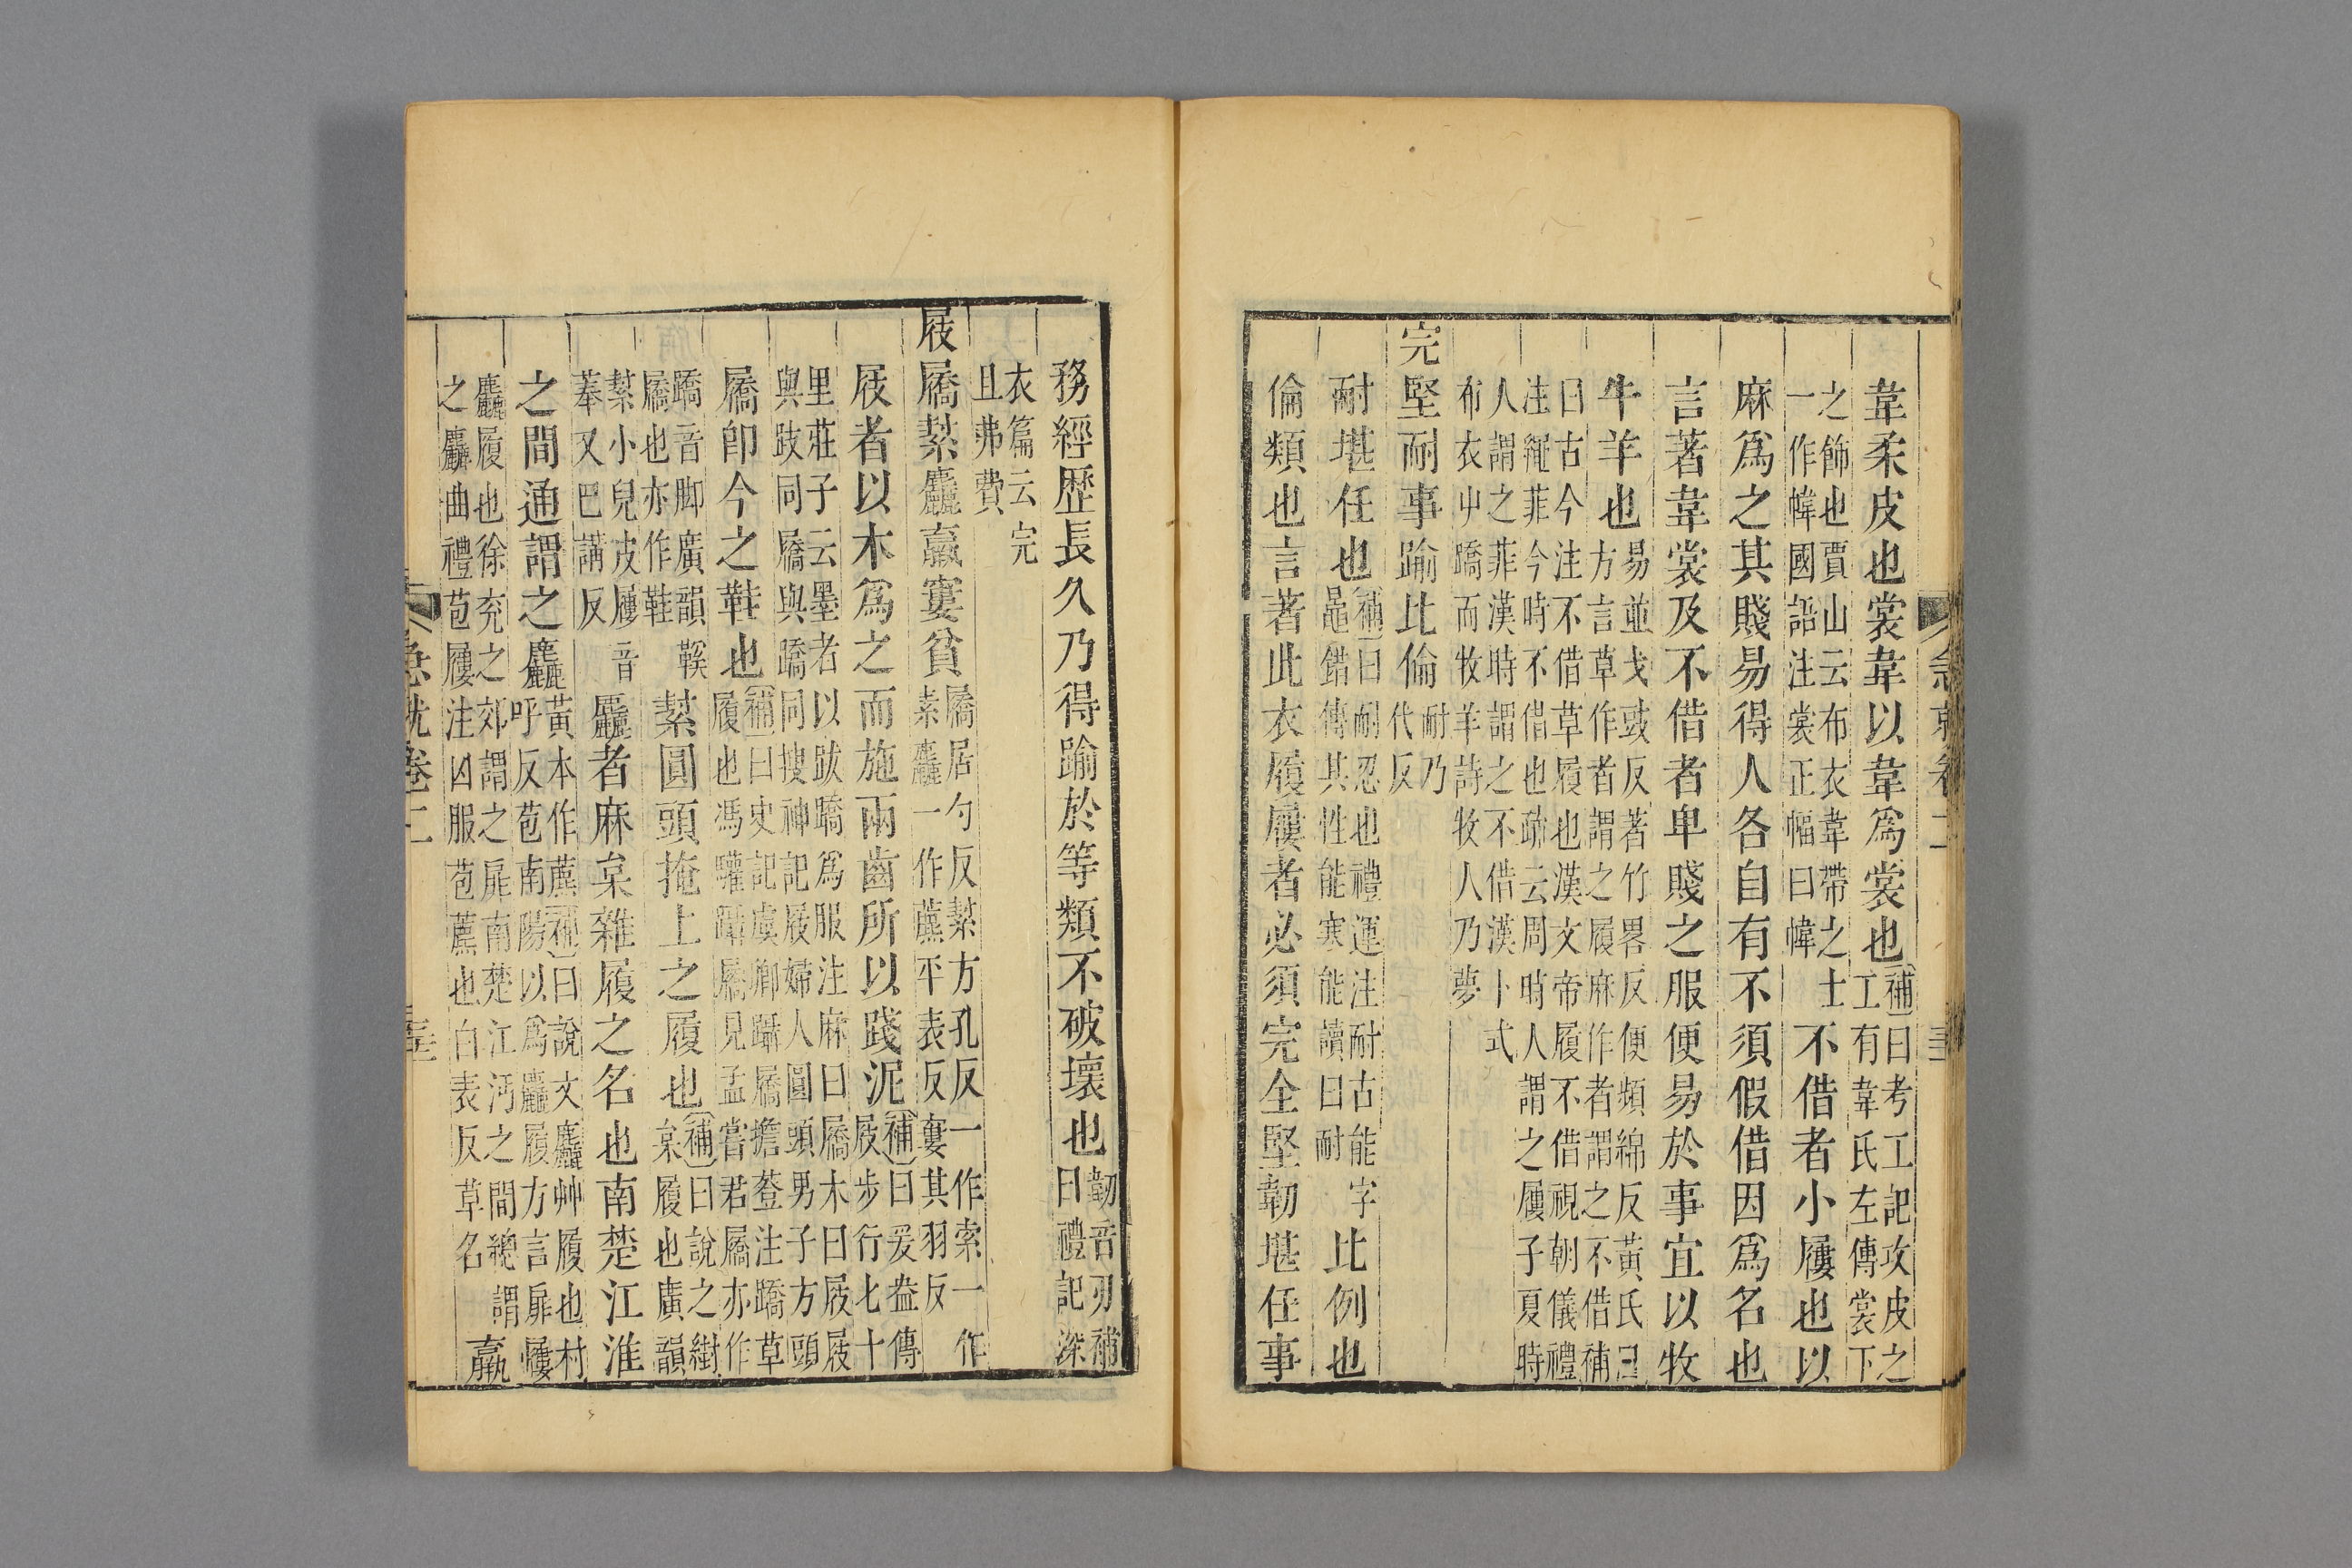 急就卷二
韋柔皮也裳韋以韋爲裳也補曰考工記攻皮之
工有韋氏左傳裳下
之飾也賈山云布衣韋帶之士
一作幃國語注裳正幅曰幃不借者小屨也以
麻爲之其賤易得人各自有不須假借因爲名也
言著韋裳及不借者卑賤之服便易於事宜以牧
牛羊也易並戈豉反著竹畧反便頻綿反黃氏曰
方言草作者謂之履麻作者謂之不借補
曰古今注不借草履也漢文帝履不借視朝儀禮
注繩菲今時不借也疏云周時人謂之屨子夏時
人謂之菲漢時謂之不借漢卜式
布衣屮蹻而牧羊詩牧人乃夢
完堅耐事踰比倫耐乃
代反
耐堪任也補曰耐忍也禮運注耐古能字
鼂錯傳其性能寒能讀曰耐比例也
倫類也言著此衣履屨者必須完全堅韌堪任事
務經歷長久乃得踰於等類不破壞也韌音刃補
曰禮記深
衣篇云完
且弗費
屐屩絜麤羸窶貧屩居勺反絜方孔反一作索一作
素麤一作藨平表反窶其羽反
屐者以木爲之而施兩齒所以踐泥補曰爰盎傳
屐步行七十
里莊子云墨者以跂蹻爲服注麻曰屩木曰屐屐
與跂同屩與蹻同搜神記屐婦人圓頭男子方頭
屩卽今之鞋也補曰史記虞卿躡屩擔簦注蹻草
履也馮驩躡屩見孟嘗君屩亦作
蹻音脚廣韻鞵
屩也亦作鞋絜圓頭掩上之履也補曰說之紨
枲履也廣韻
絜小兒皮屨音
菶又巴講反麤者麻枲雜履之名也南楚江淮
之間通謂之麤黃本作藨補曰說文麤艸履也村
呼反苞南陽以爲麤履方言扉屨
麤履也徐兖之郊謂之扉南楚江沔之間緫謂
之麤曲禮苞屨注凶服苞藨也白表反草名羸
急就卷二